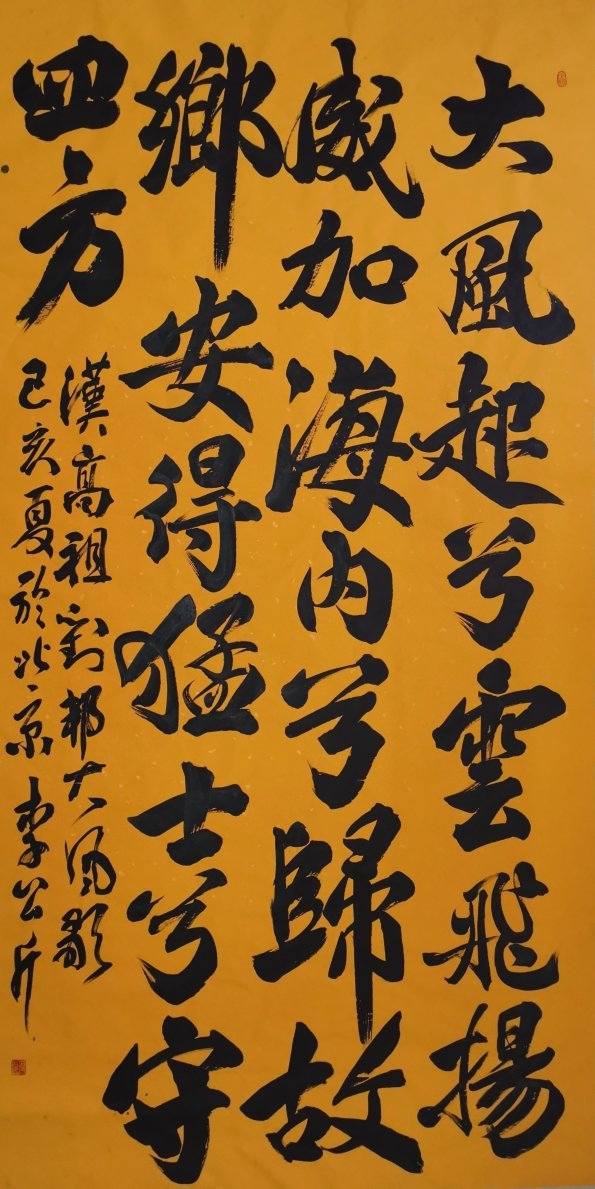 大風起兮雲飛揚
威加海内兮歸故
鄉安得猛士兮守
四方
漢高祖劉邦大風歌
己亥夏於北京李公斤